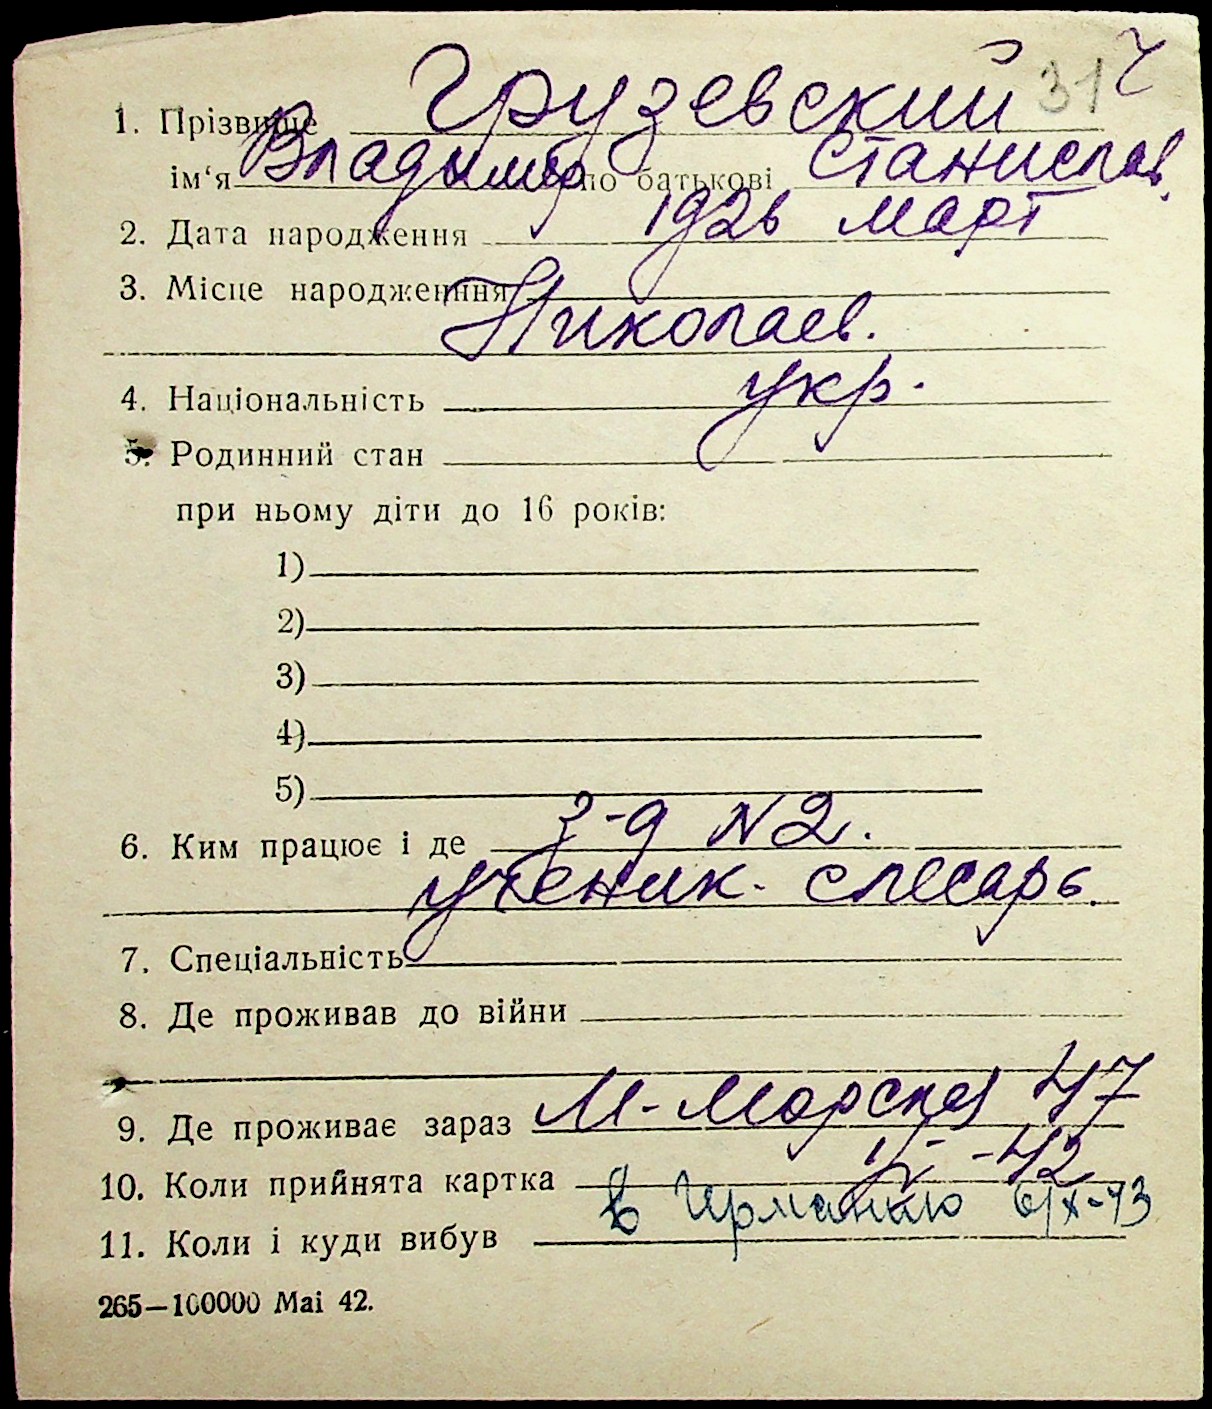 31 ч
1. Прізвище Грузевский
ім‘я Владимир по батькові Станислав.
2. Дата народження 1926 март
3. Місце народженння
Николаев.
4. Національність укр.
5. Родинний стан
при ньому діти до 16 років:
1)
2)
3)
4)
5)
6. Ким працює і де з-д N2.
ученик- слесарь.
7. Спеціальність
8. Де проживав до війни
9. Де проживає зараз М-Морская 47
10. Коли прийнята картка -42
11. Коли і куди вибув в Германию 6/X-43
265—100000 Mai 42.